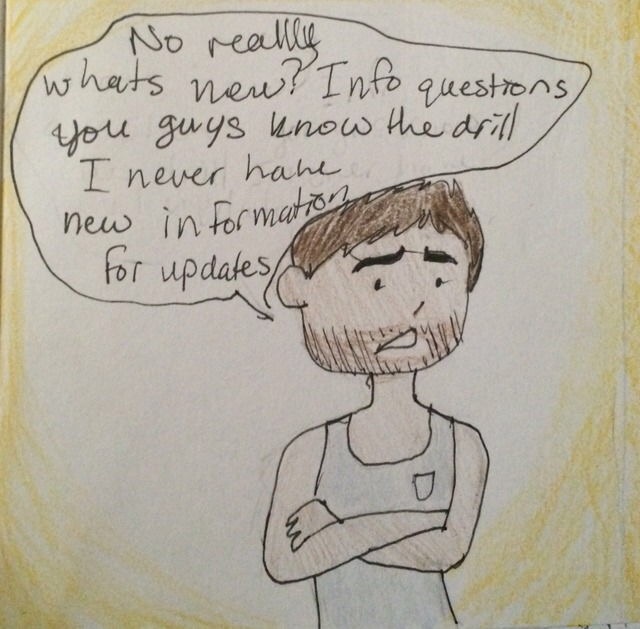 No really
whats new? Info questions
you guys know the drill
I never have
new information
for updates